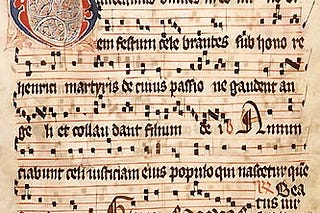 em festum cele brantes sub hono re
henrici martyris de cuius passio ne gaudent an
ge li et collau dant filium de i Annun
ciabunt celi iusticiam eius populo qui nascetur que
Bea
tus vir